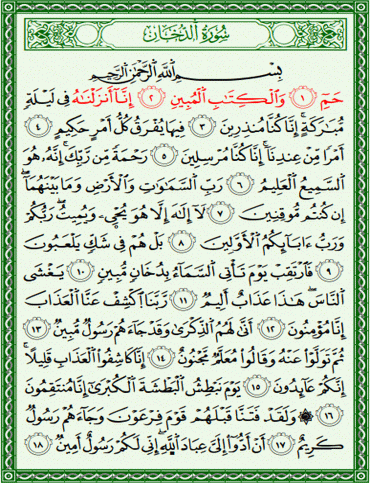 سُورَةُ الدُّخَانِ
بِسْمِ اللَّهِ الرَّحْمَٰنِ الرَّحِيمِ
حمٓ ١ وَالْكِتَٰبِ الْمُبِينِ ٢ إِنَّآ أَنزَلْنَٰهُ فِى لَيْلَةٍ
مُّبَٰرَكَةٍ ۚ إِنَّا كُنَّا مُنذِرِينَ ٣ فِيهَا يُفْرَقُ كُلُّ أَمْرٍ حَكِيمٍ ٤
أَمْرًا مِّنْ عِندِنَآ ۚ إِنَّا كُنَّا مُرْسِلِينَ ٥ رَحْمَةً مِّن رَّبِّكَ ۚ إِنَّهُۥ هُوَ
السَّمِيعُ الْعَلِيمُ ٦ رَبِّ السَّمَٰوَٰتِ وَالْأَرْضِ وَمَا بَيْنَهُمَآ ۖ
إِن كُنتُم مُّوقِنِينَ ٧ لَآ إِلَٰهَ إِلَّا هُوَ يُحْىِۦ وَيُمِيتُ ۖ رَبُّكُمْ
وَرَبُّ ءَابَآئِكُمُ الْأَوَّلِينَ ٨ بَلْ هُمْ فِى شَكٍّ يَلْعَبُونَ
٩ فَارْتَقِبْ يَوْمَ تَأْتِى السَّمَآءُ بِدُخَانٍ مُّبِينٍ ١٠ يَغْشَى
النَّاسَ ۖ هَٰذَا عَذَابٌ أَلِيمٌ ١١ رَّبَّنَا اكْشِفْ عَنَّا الْعَذَابَ
إِنَّا مُؤْمِنُونَ ١٢ أَنَّىٰ لَهُمُ الذِّكْرَىٰ وَقَدْ جَآءَهُمْ رَسُولٌ مُّبِينٌ ١٣
ثُمَّ تَوَلَّوْا۟ عَنْهُ وَقَالُوا۟ مُعَلَّمٌ مَّجْنُونٌ ١٤ إِنَّا كَاشِفُوا۟ الْعَذَابِ قَلِيلًا ۚ
إِنَّكُمْ عَآئِدُونَ ١٥ يَوْمَ نَبْطِشُ الْبَطْشَةَ الْكُبْرَىٰٓ إِنَّا مُنتَقِمُونَ
١٦ ۞ وَلَقَدْ فَتَنَّا قَبْلَهُمْ قَوْمَ فِرْعَوْنَ وَجَآءَهُمْ رَسُولٌ
كَرِيمٌ ١٧ أَنْ أَدُّوٓا۟ إِلَىَّ عِبَادَ اللَّهِ ۖ إِنِّى لَكُمْ رَسُولٌ أَمِينٌ ١٨